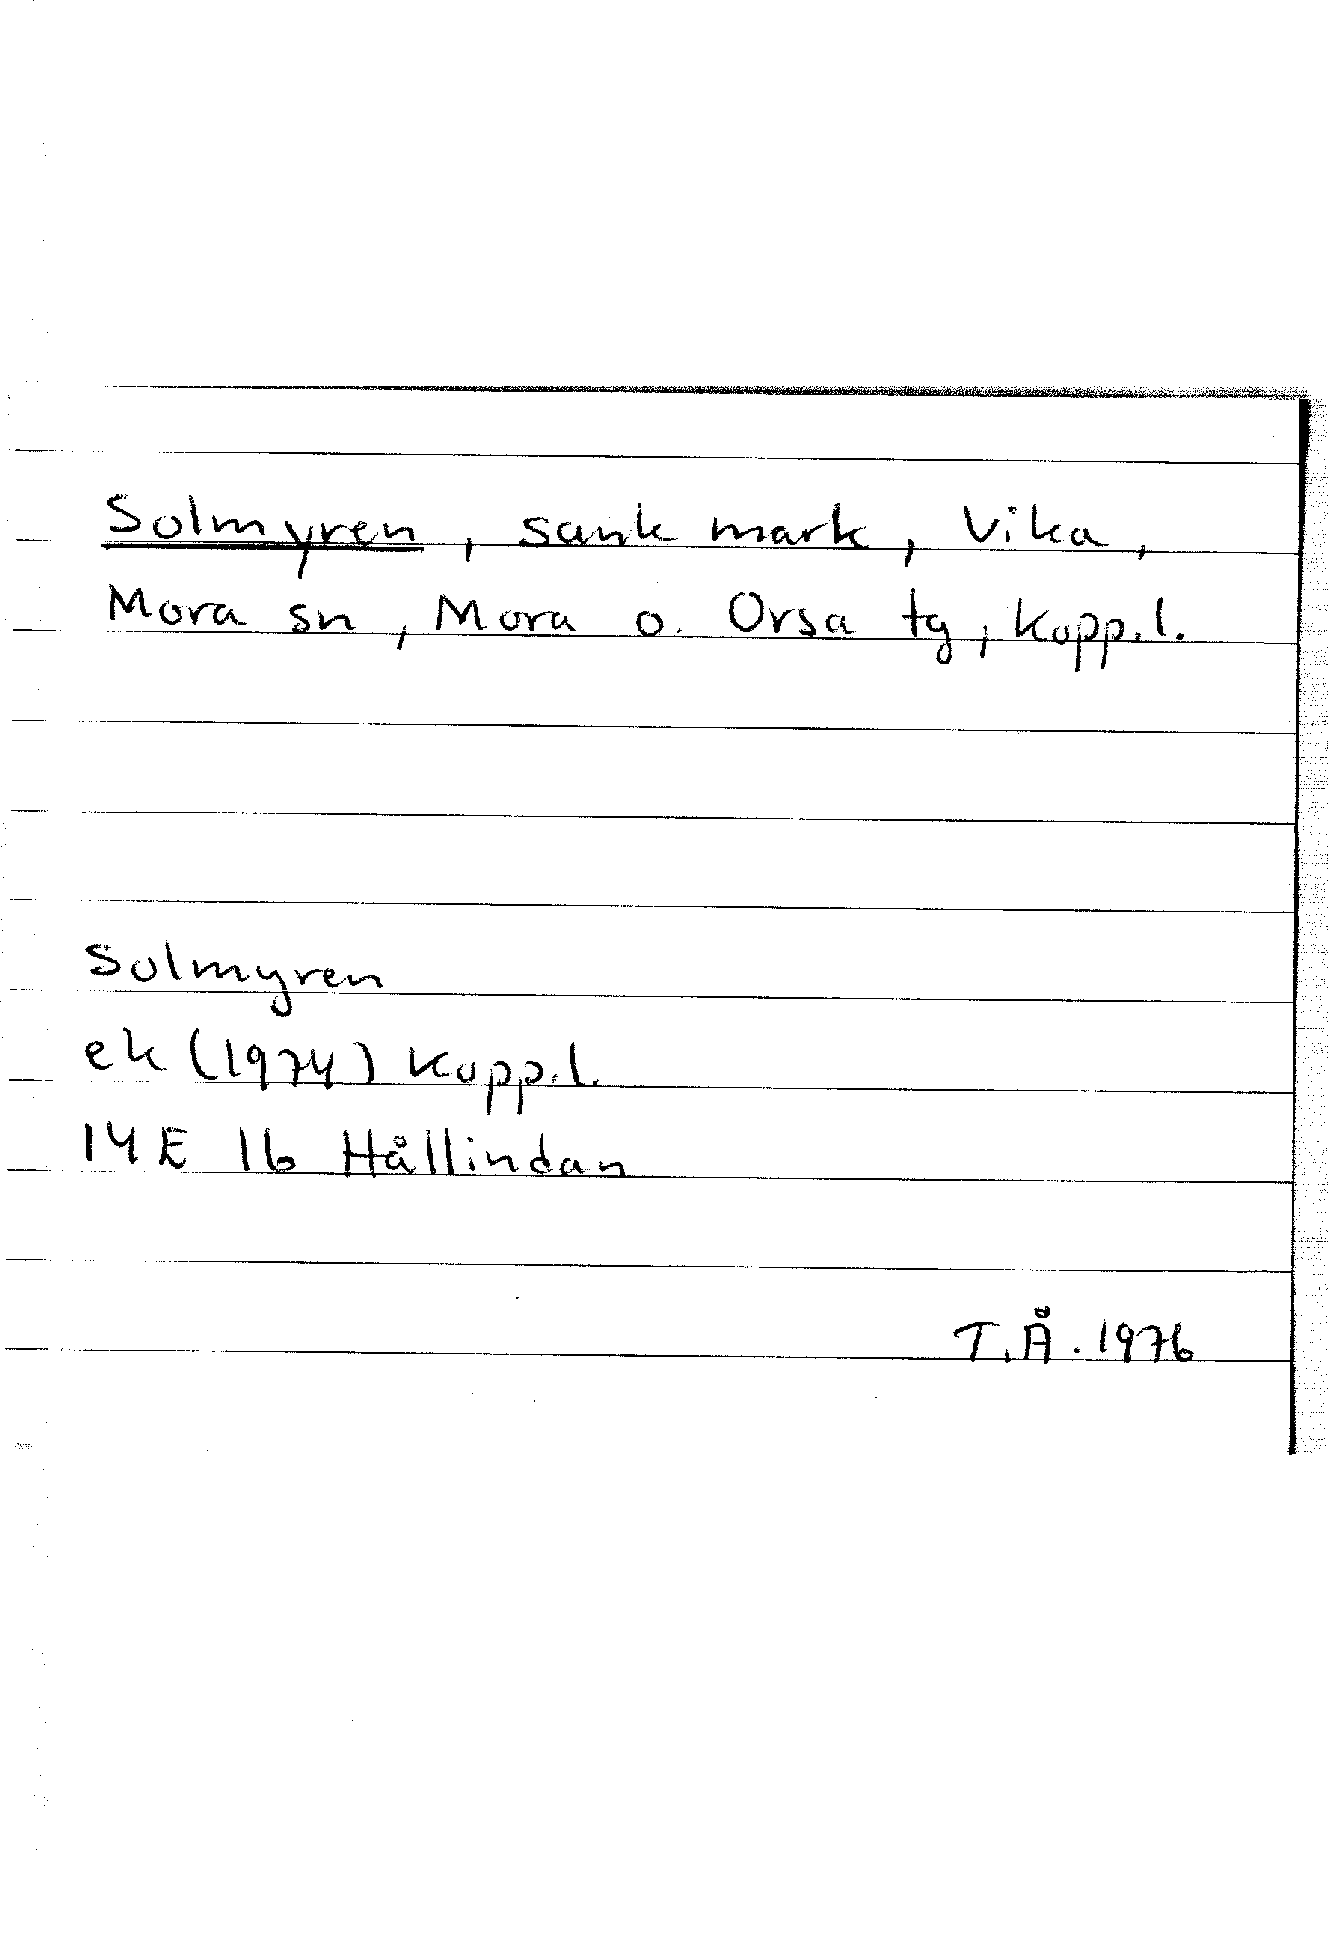 Solmyren, sank mark, Vika,
Mora sn, Mora o. Orsa tg, Kopp.l.
Solmyren
ek (1974) Kopp.l.
14E 1b Hållindan
T.Å. 1976